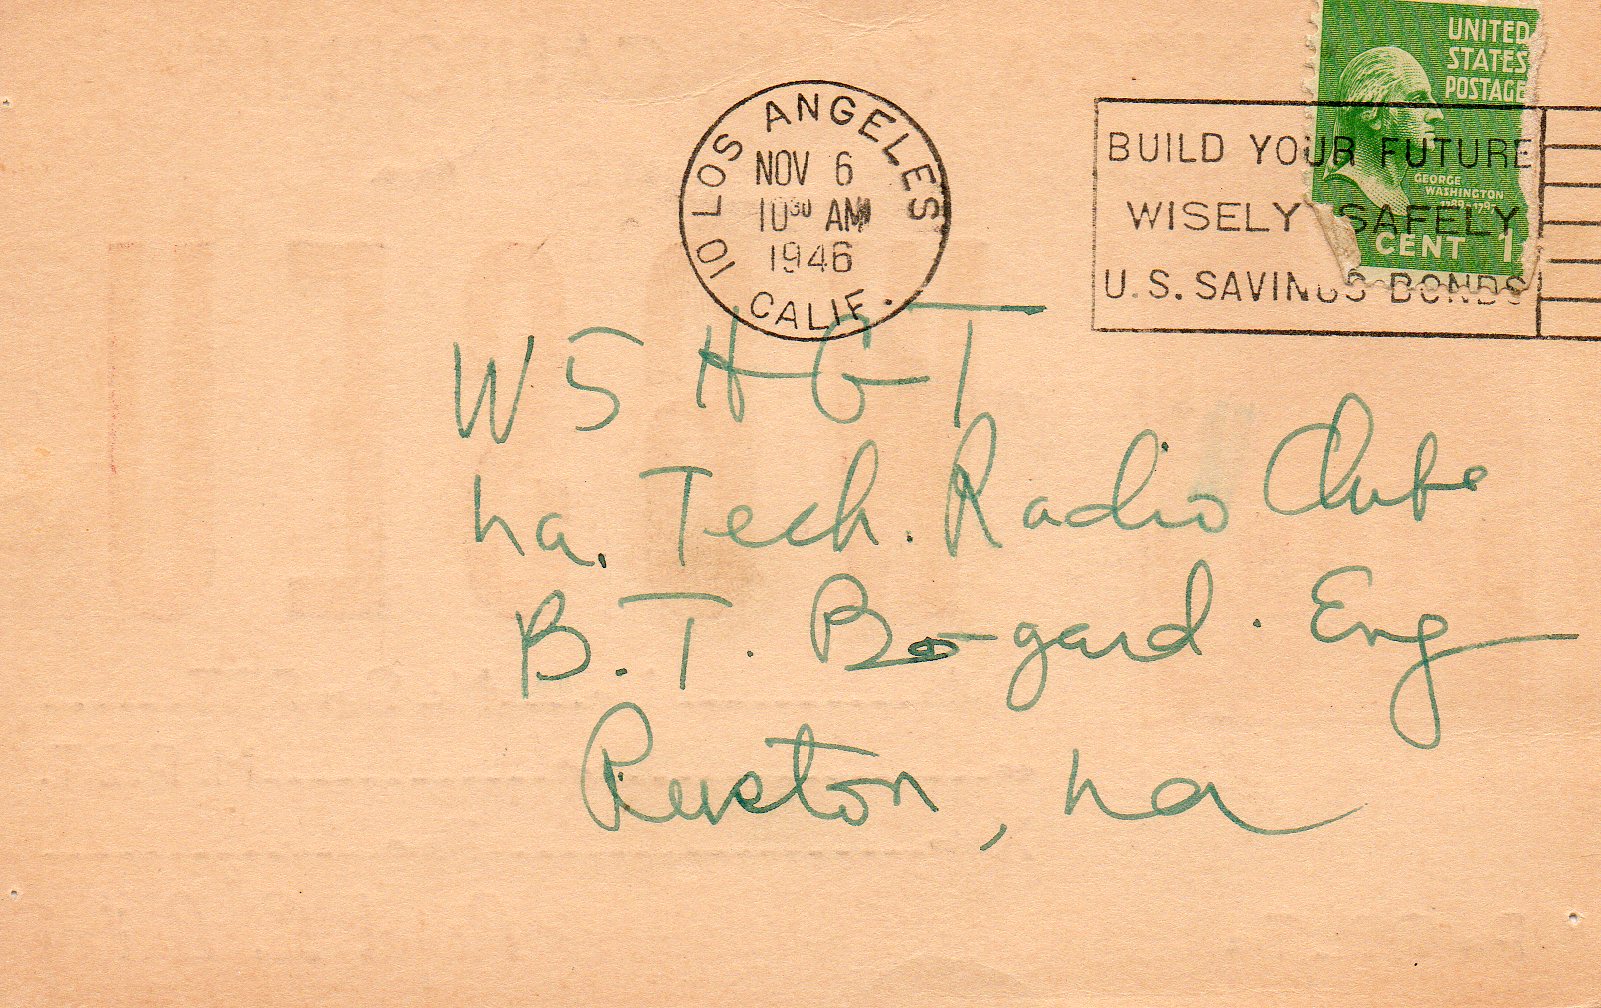 UNITED
STATES
POSTAGE
GEORGE
WASHINGTON
1789-1797
CENT 1
LOS ANGELES 10
NOV 6
10³⁰ AM
1946
CALIF.
BUILD YOUR FUTURE
WISELY SAFELY
U.S. SAVINGS BONDS
W5HGT
La. Tech. Radio Clube
B.T. Bogard. Eng
Ruston, La